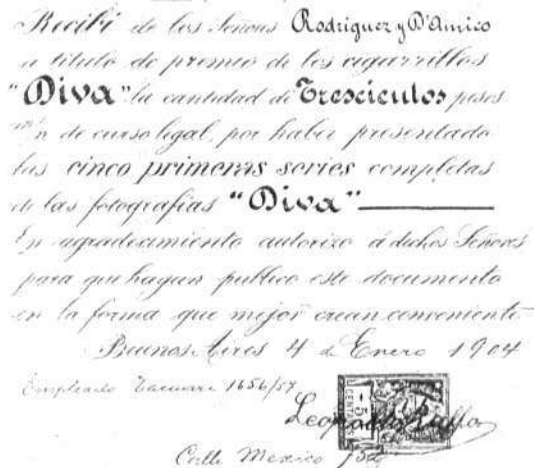 Recibí de los Señores Rodriguez y D'Amico
a título de premio de los cigarrillos
"Diva" la cantidad de Trescientos pesos
m/n de curso legal, por haber presentado
las cinco primeras series completas
de las fotografías "Diva"
En agradecimiento autorizo á dichos Señores
para que hagan publico este documento
en la forma que mejor crean conveniente
Buenos Aires 4 de Enero 1904
Empleado Tacuari 1656/57
5
CENTAVOS
Calle Mexico